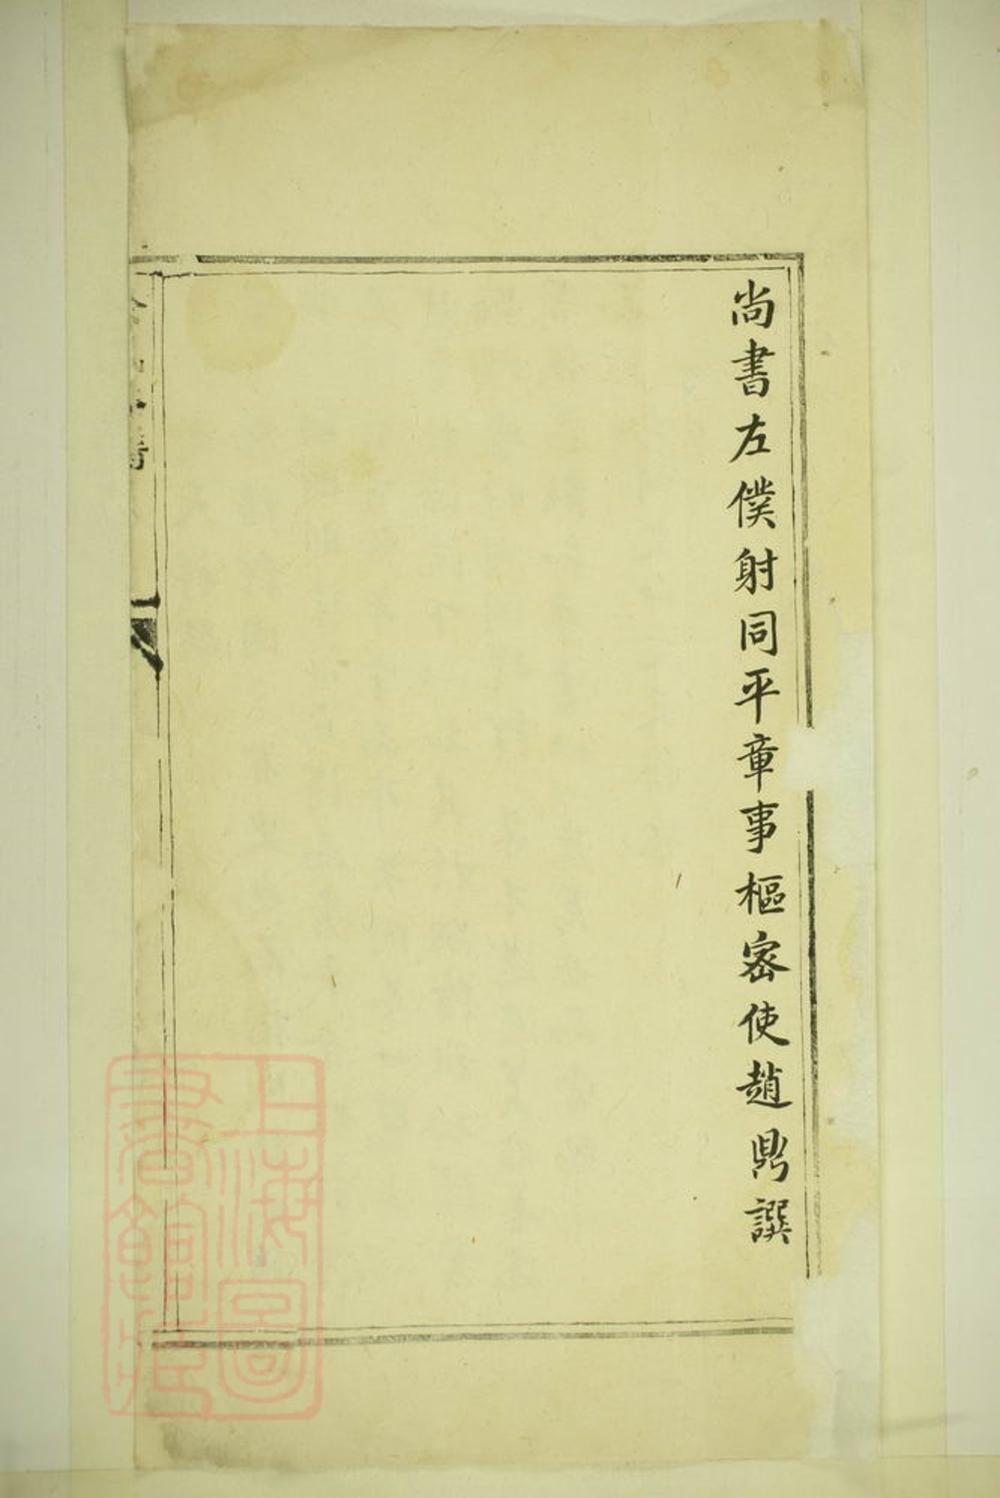 尚書左僕射同平章事樞密使趙鼎譔
上海圖
書館藏